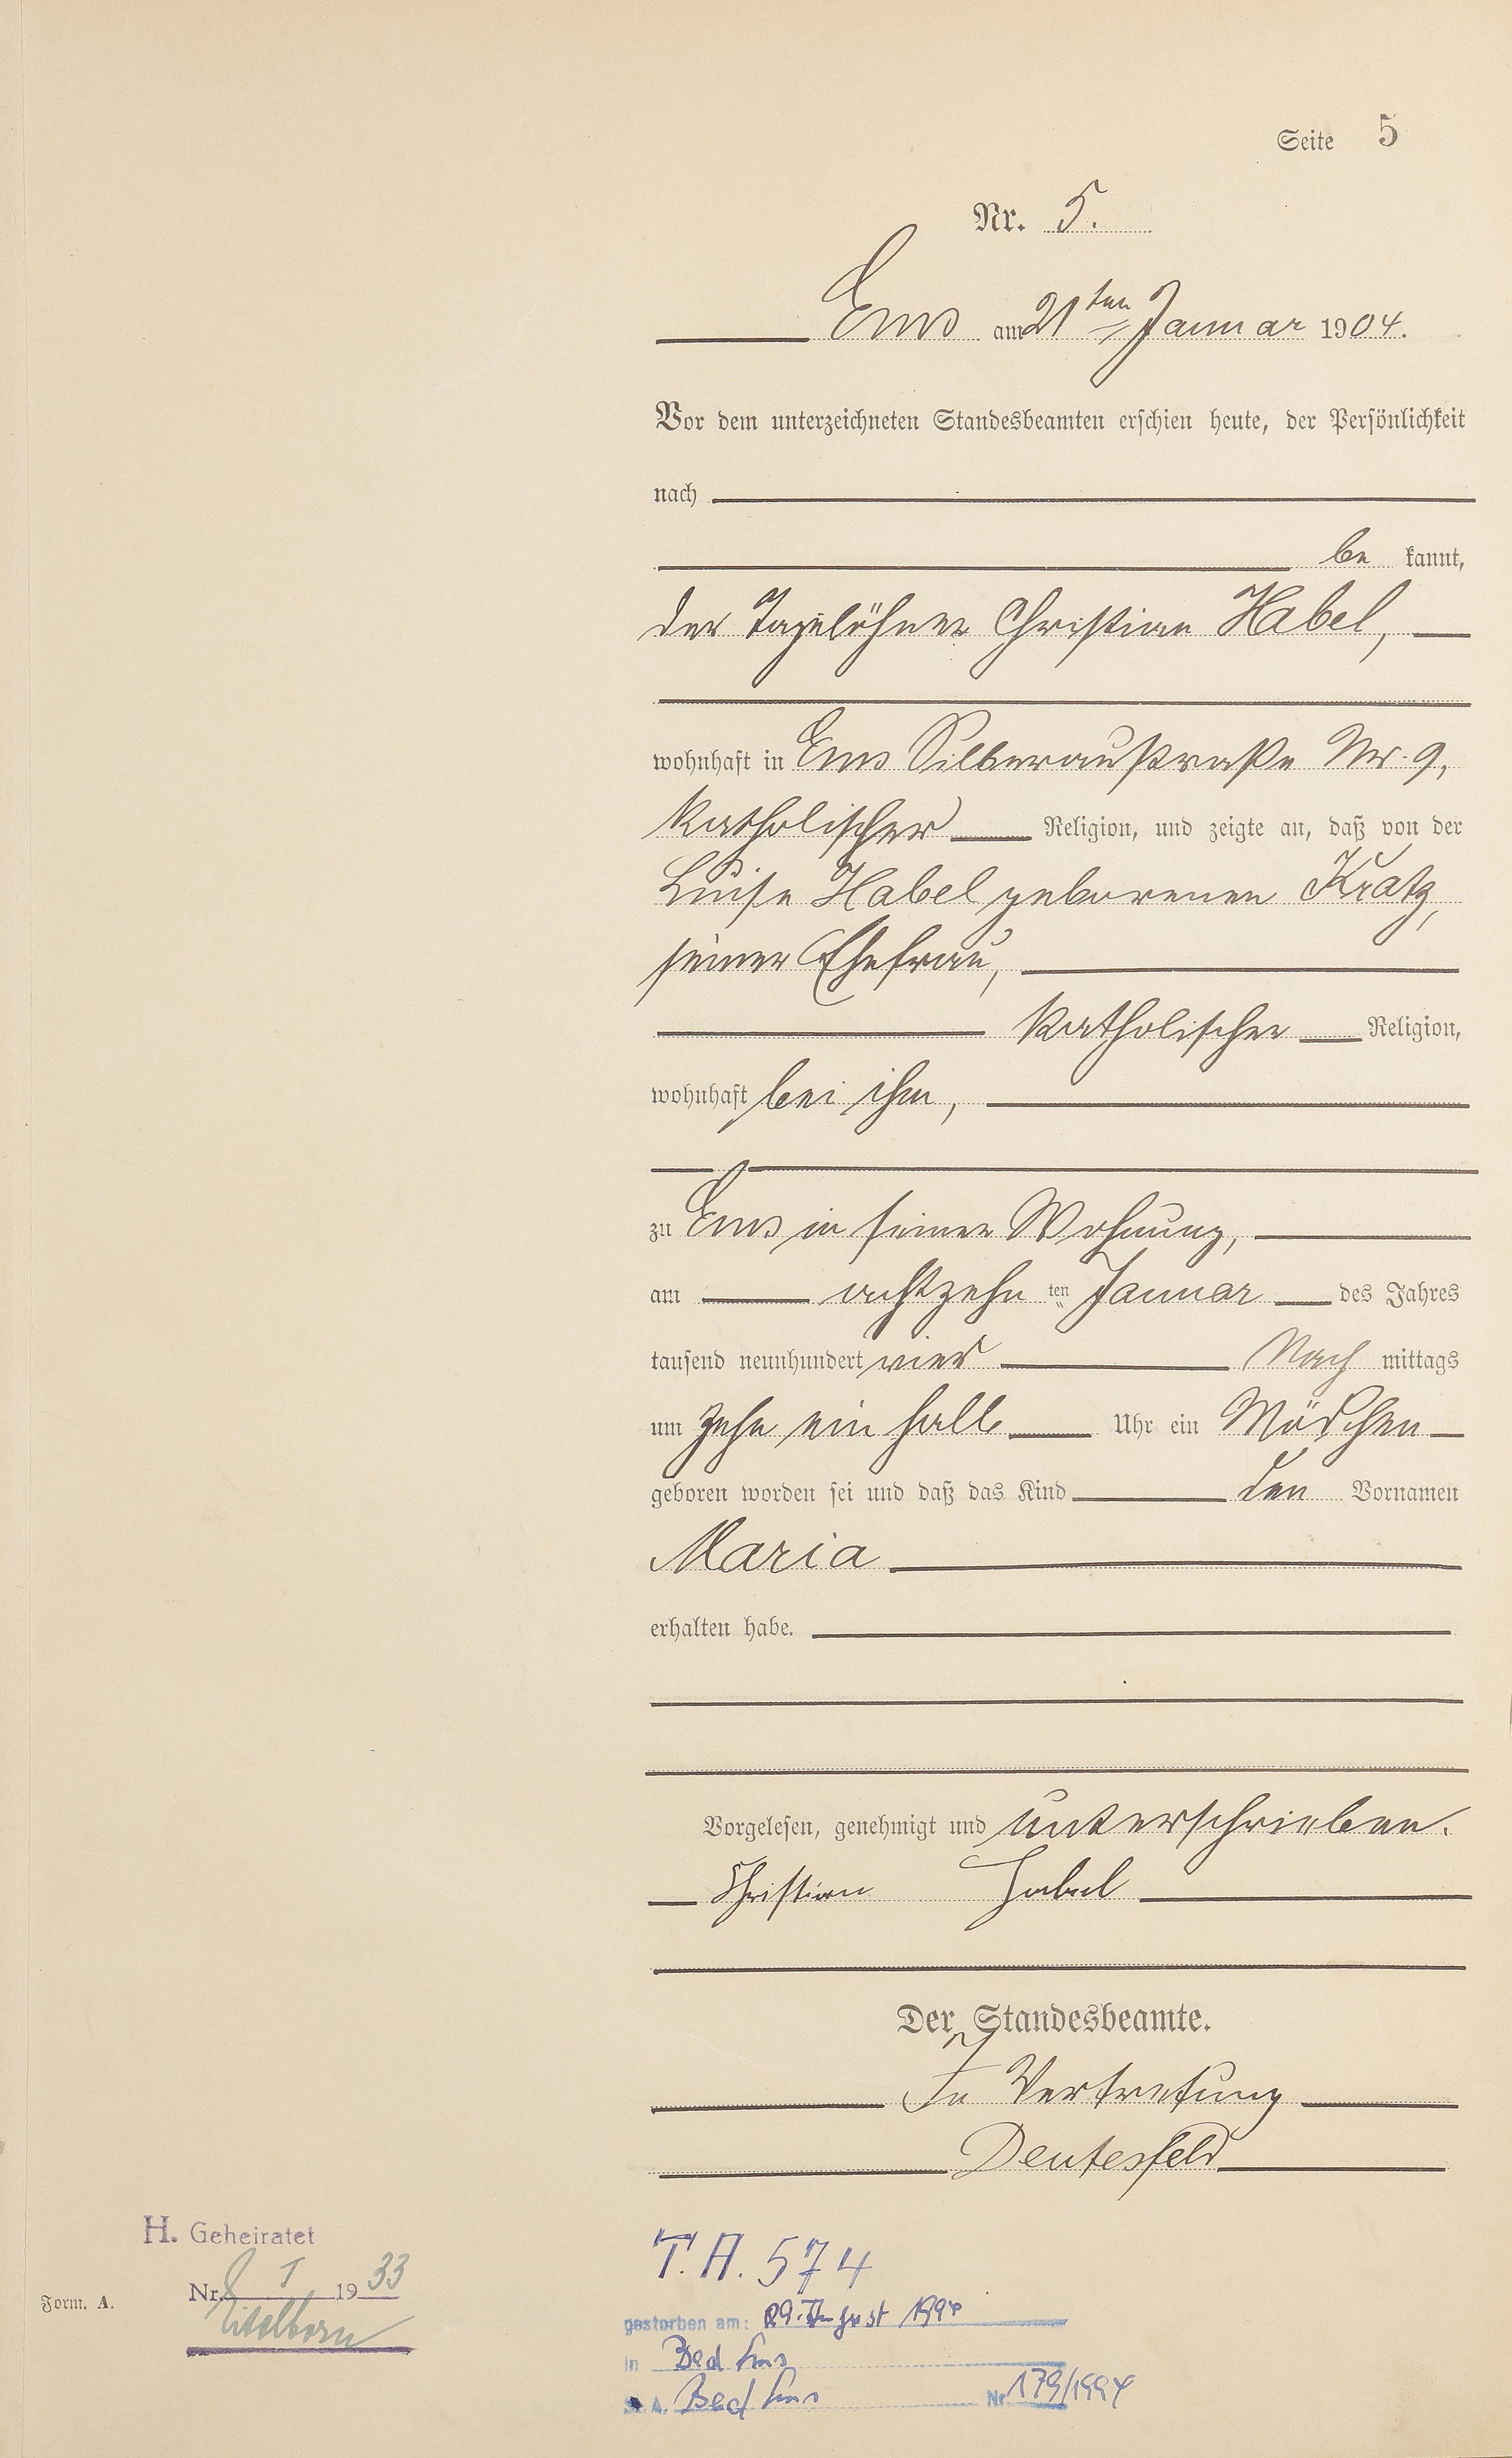 Seite 5
Nr. 5.
Ems am 21ten Januar 1904.
Vor dem unterzeichneten Standesbeamten erschien heute, der Persönlichkeit
nach
be kannt,
der Tagelöhner Christian Habel,
wohnhaft in Ems Silberaustraße Nr. 9,
katholischer Religion, und zeigte an, daß von der
Luise Habel geborenen Kratz,
seiner Ehefrau,
katholischer Religion,
wohnhaft bei ihm,
zu Ems in seiner Wohnung,
am achtzehn ten Januar des Jahres
tausend neunhundert vier Nach mittags
um zehn ein halb Uhr ein Mädchen
geboren worden sei und daß das Kind den Vornamen
Maria
erhalten habe.
Vorgelesen, genehmigt und unterschrieben.
Christian Habel
Der Standesbeamte.
In Vertretung
Deutesfeld
H. Geheiratet
Nr. 1933
Eitelborn
Form. A.
T. A. 574
gestorben am: 29. August 1994
in Bad Ems
St. A. Bad Ems Nr. 179/1994